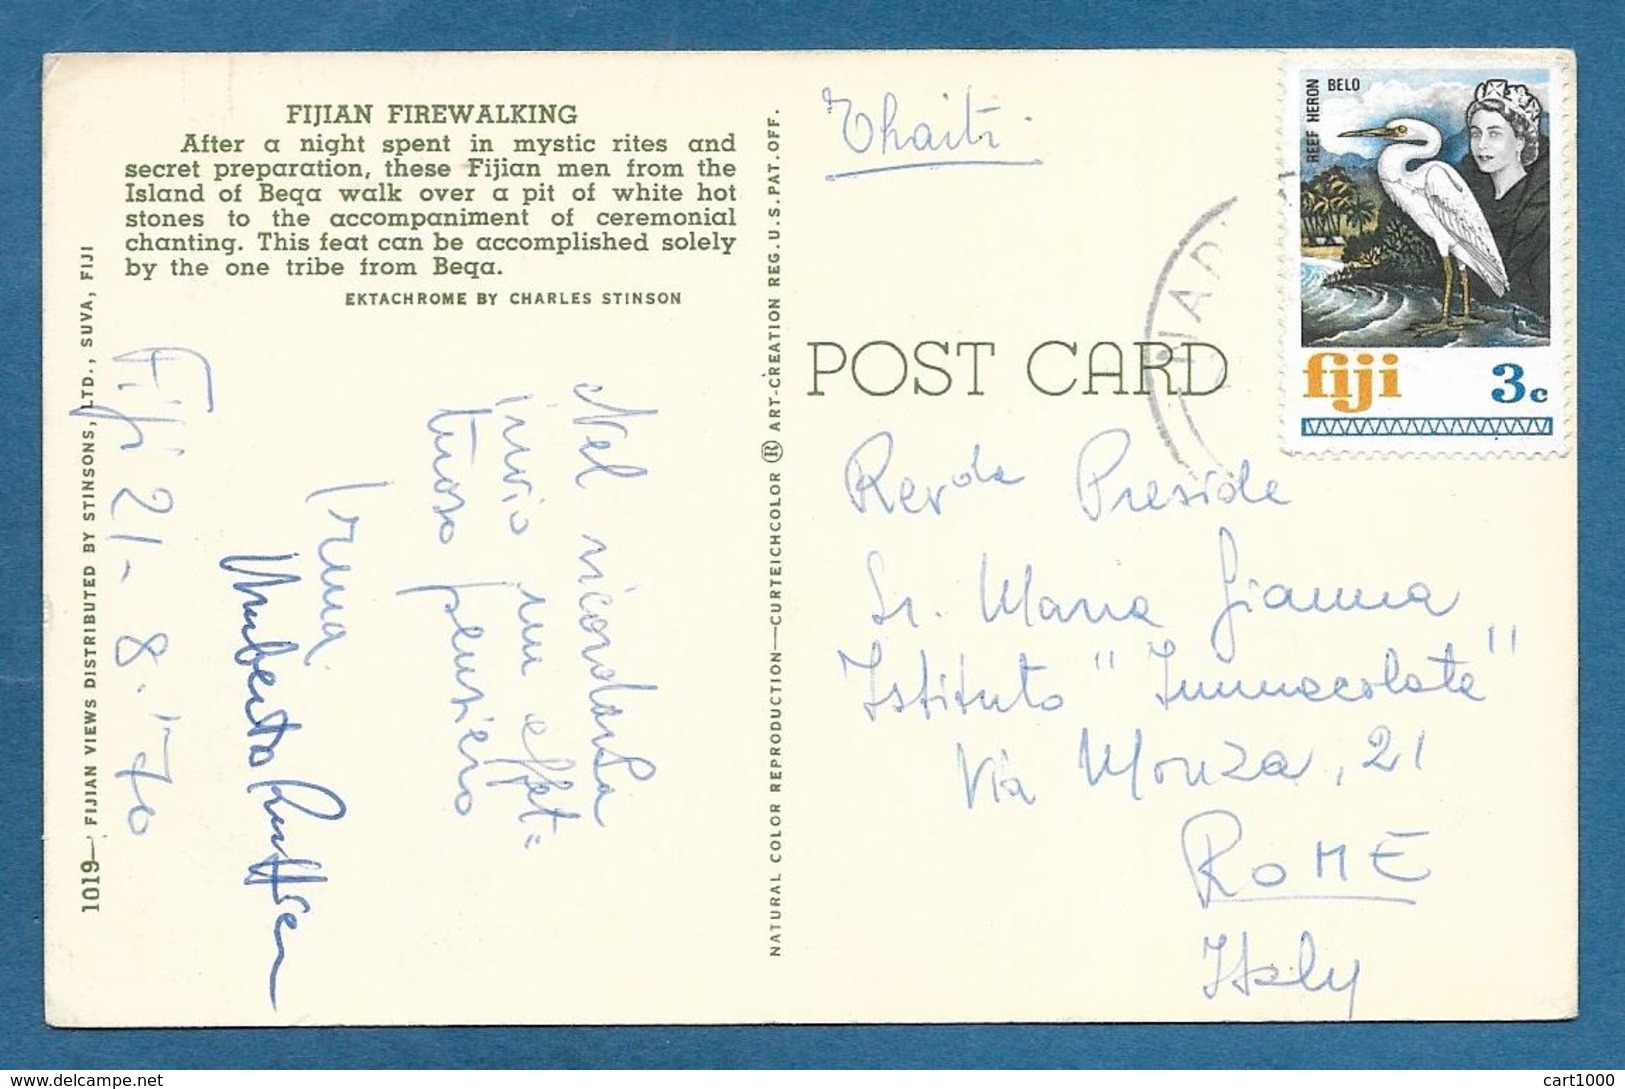 FIJIAN FIREWALKING
After a night spent in mystic rites and
secret preparation, these Fijian men from the
Island of Beqa walk over a pit of white hot
stones to the accompaniment of ceremonial
chanting. This feat can be accomplished solely
by the one tribe from Beqa.
EKTACHROME BY CHARLES STINSON
1019— FIJIAN VIEWS DISTRIBUTED BY STINSONS, LTD., SUVA, FIJI
Fiji 21-8-'70
Nel ricordarLa
invio un effet=
tuoso pensiero
Irma
Umberto
NATURAL COLOR REPRODUCTION—CURTEICHCOLOR ® ART-CREATION REG. U.S. PAT. OFF.
Thaiti
POST CARD
REEF HERON BELO
fiji 3c
NAD
Rev da Preside
Sr. Maria Gianna
Istituto "Immacolata"
Via Monza, 21
ROME
Italy
cart1000
delcampe.net